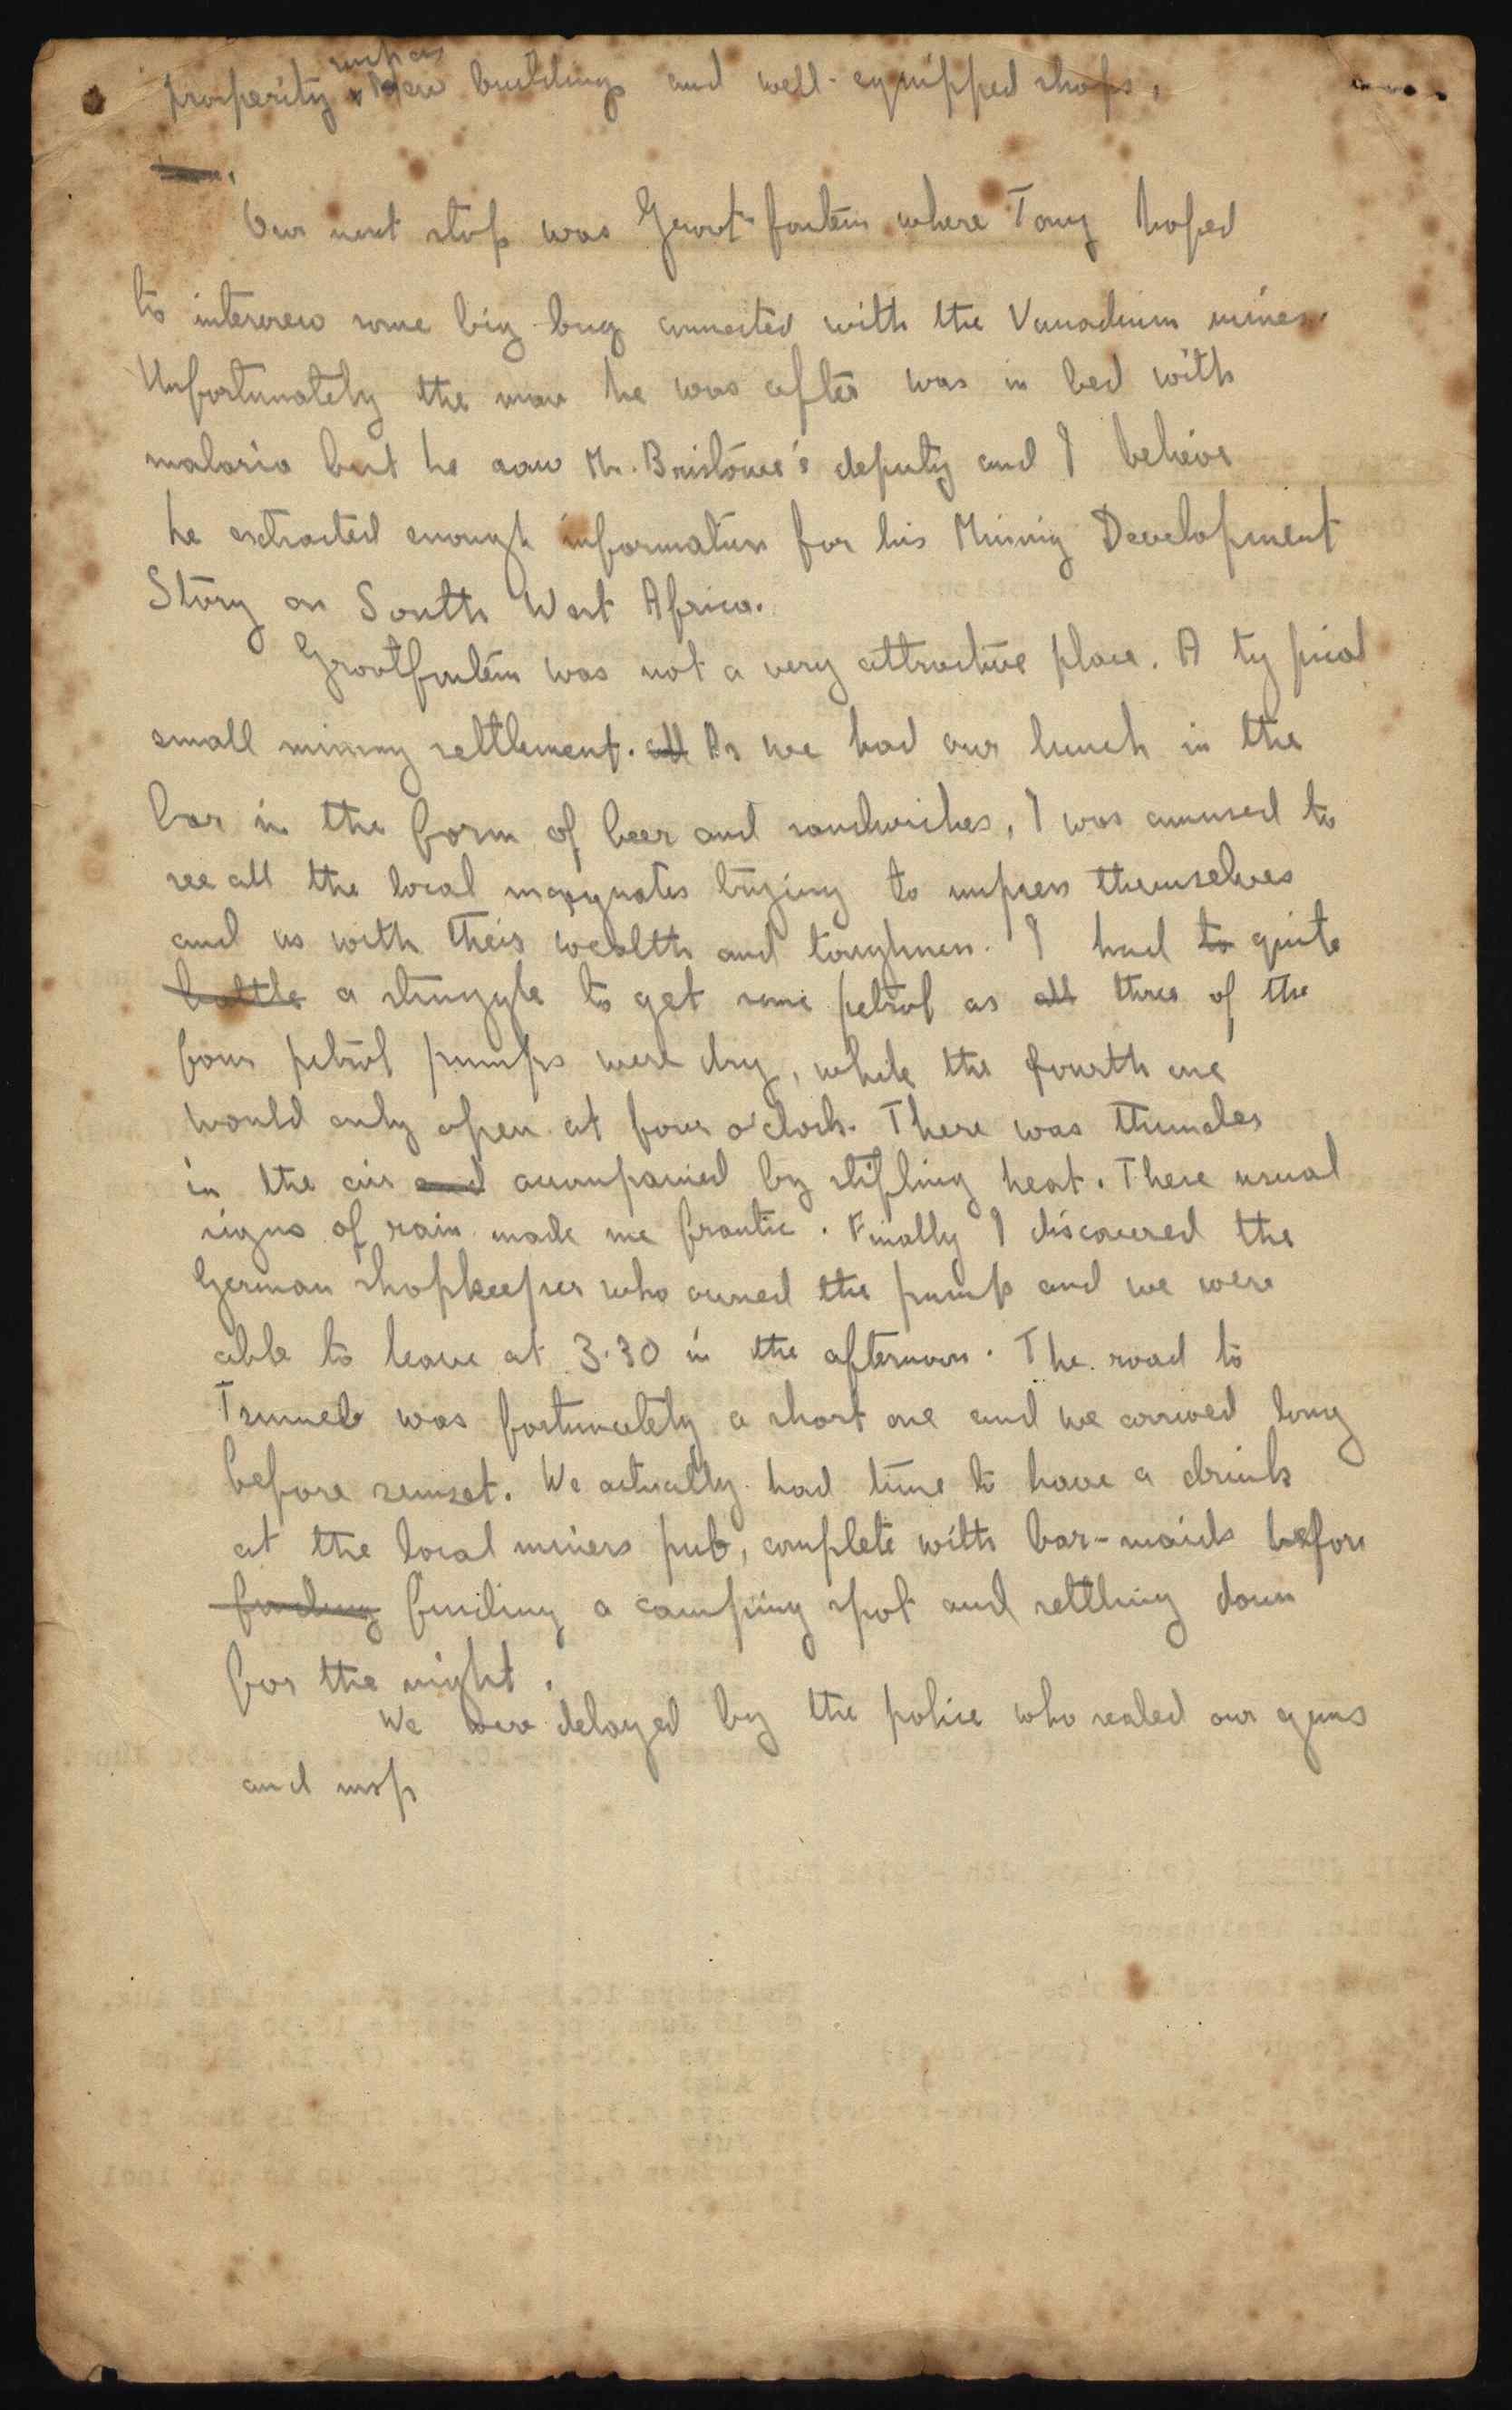 prosperity such as New buildings and well-equipped shops.
Our next stop was Grootfontein where Tony hoped
to interview some big bug connected with the Vanadium mines.
Unfortunately the man he was after was in bed with
malaria but he saw Mr. Bristowe's deputy and I believe
he extracted enough information for his Mining Development
Story on South West Africa.
Grootfontein was not a very attractive place. A typical
small mining settlement. all As we had our lunch in the
bar in the form of beer and sandwiches, I was amused to
see all the local magnates trying to impress themselves
and us with their wealth and toughness. I had to quite
battle a struggle to get some petrol as all three of the
four petrol pumps were dry, while the fourth one
would only open at four o'clock. There was thunder
in the air and accompanied by stifling heat. These usual
signs of rain made me frantic. Finally I discovered the
German shopkeeper who owned the pump and we were
able to leave at 3.30 in the afternoon. The road to
Tsumeb was fortunately a short one and we arrived long
before sunset. We actually had time to have a drink
at the local miners pub, complete with bar-maids before
finding finding a camping spot and settling down
for the night.
We were delayed by the police who sealed our guns
and insp